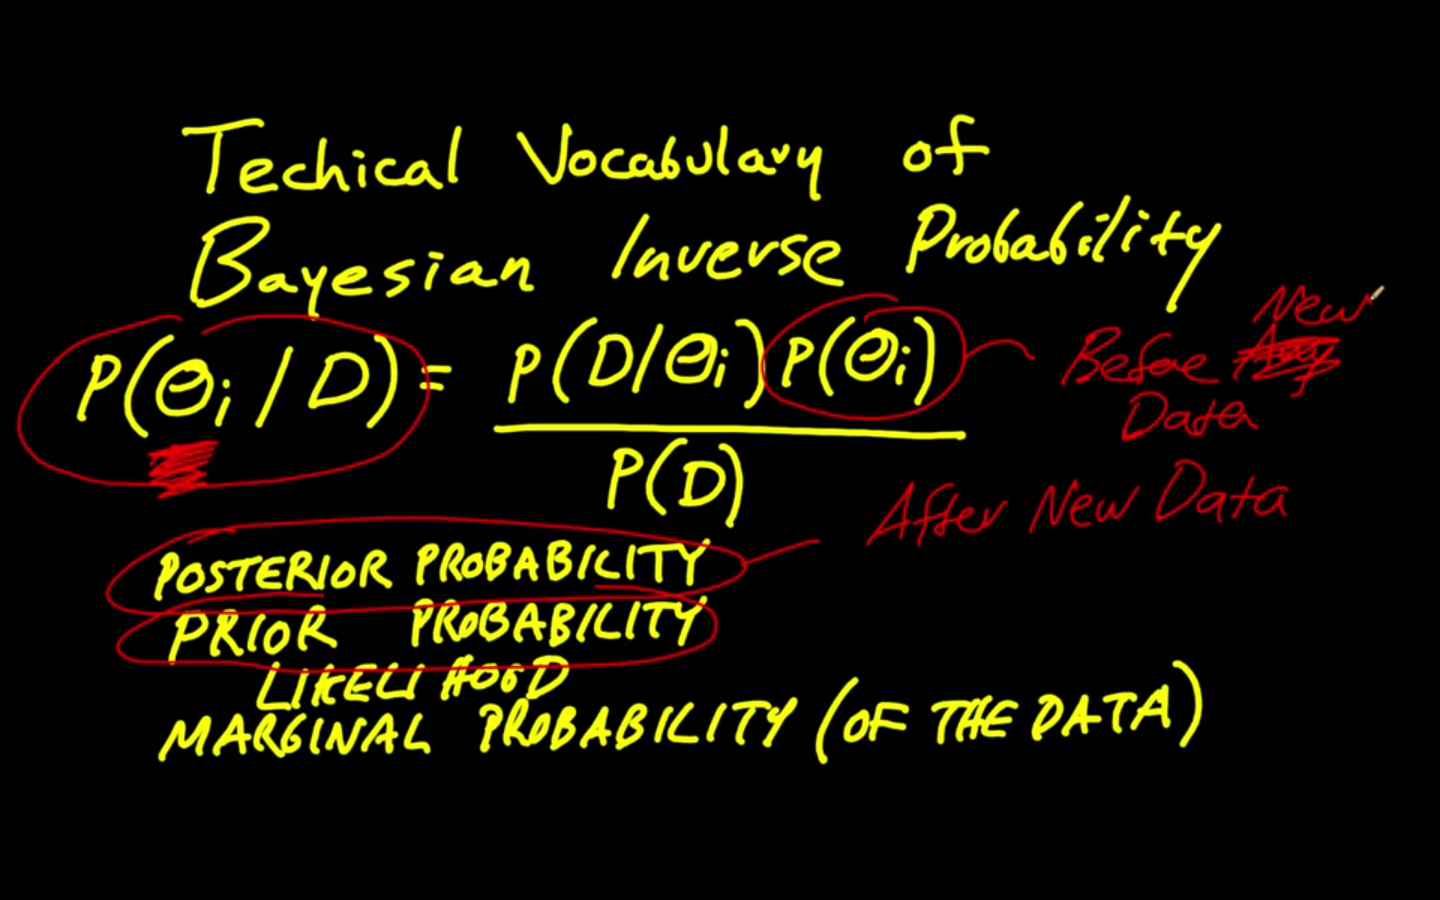 Techical Vocabulary of
Bayesian Inverse Probability
P(θi/D) = P(D/θi)P(θi)
P(D)
New
Before
Data
After New Data
POSTERIOR PROBABILITY
PRIOR PROBABILITY
LIKELIHOOD
MARGINAL PROBABILITY (OF THE DATA)